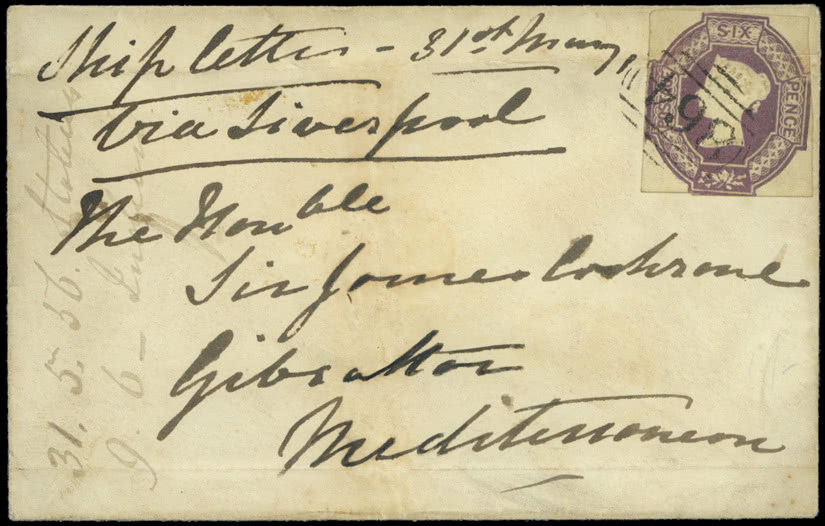 Ship letter - 31st May
Via Liverpool
The Honble
Sir James Cochrane
Gibraltar
Mediterranean
SIX
PENCE
POSTAGE
31. 5. 56.
9. 6 -